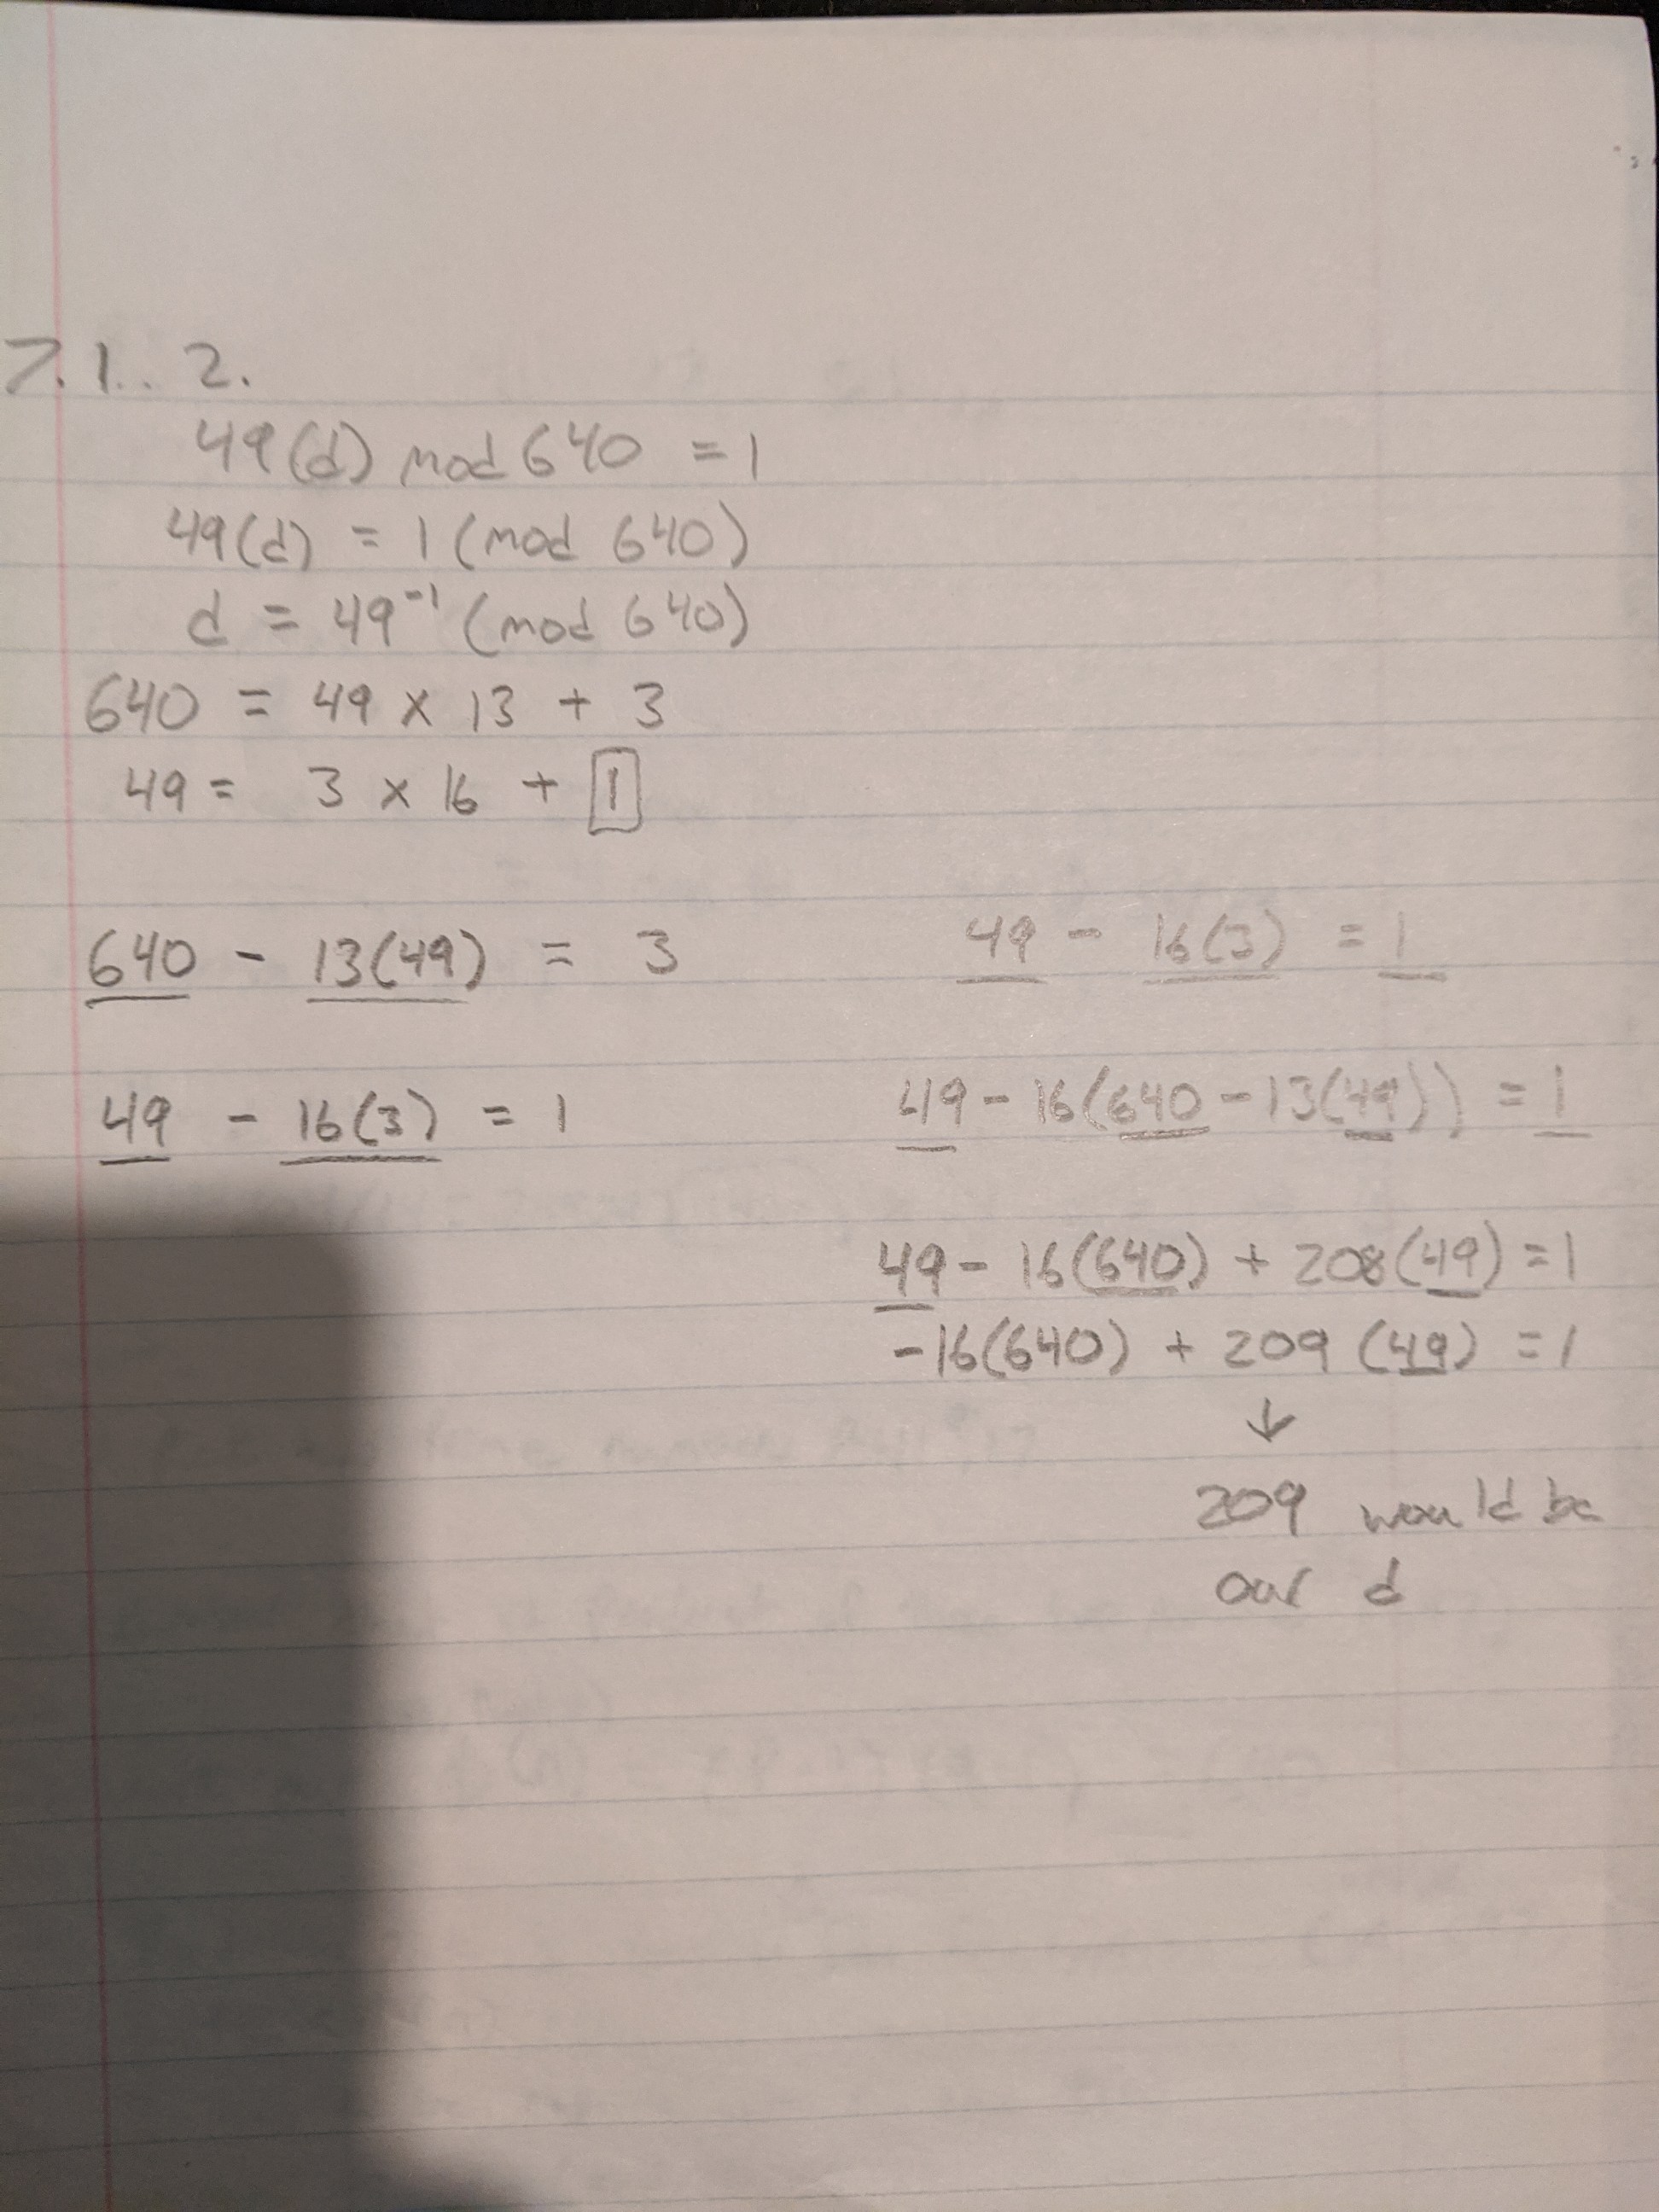 7.1.. 2.
49(d) mod 640 = 1
49(d) = 1 (mod 640)
d = 49⁻¹ (mod 640)
640 = 49 x 13 + 3
49 = 3 x 16 + 1
640 - 13(49) = 3
49 - 16(3) = 1
49 - 16(3) = 1
49 - 16(640 - 13(49)) = 1
49 - 16(640) + 208(49) = 1
-16(640) + 209 (49) = 1
↓
209 would be
our d